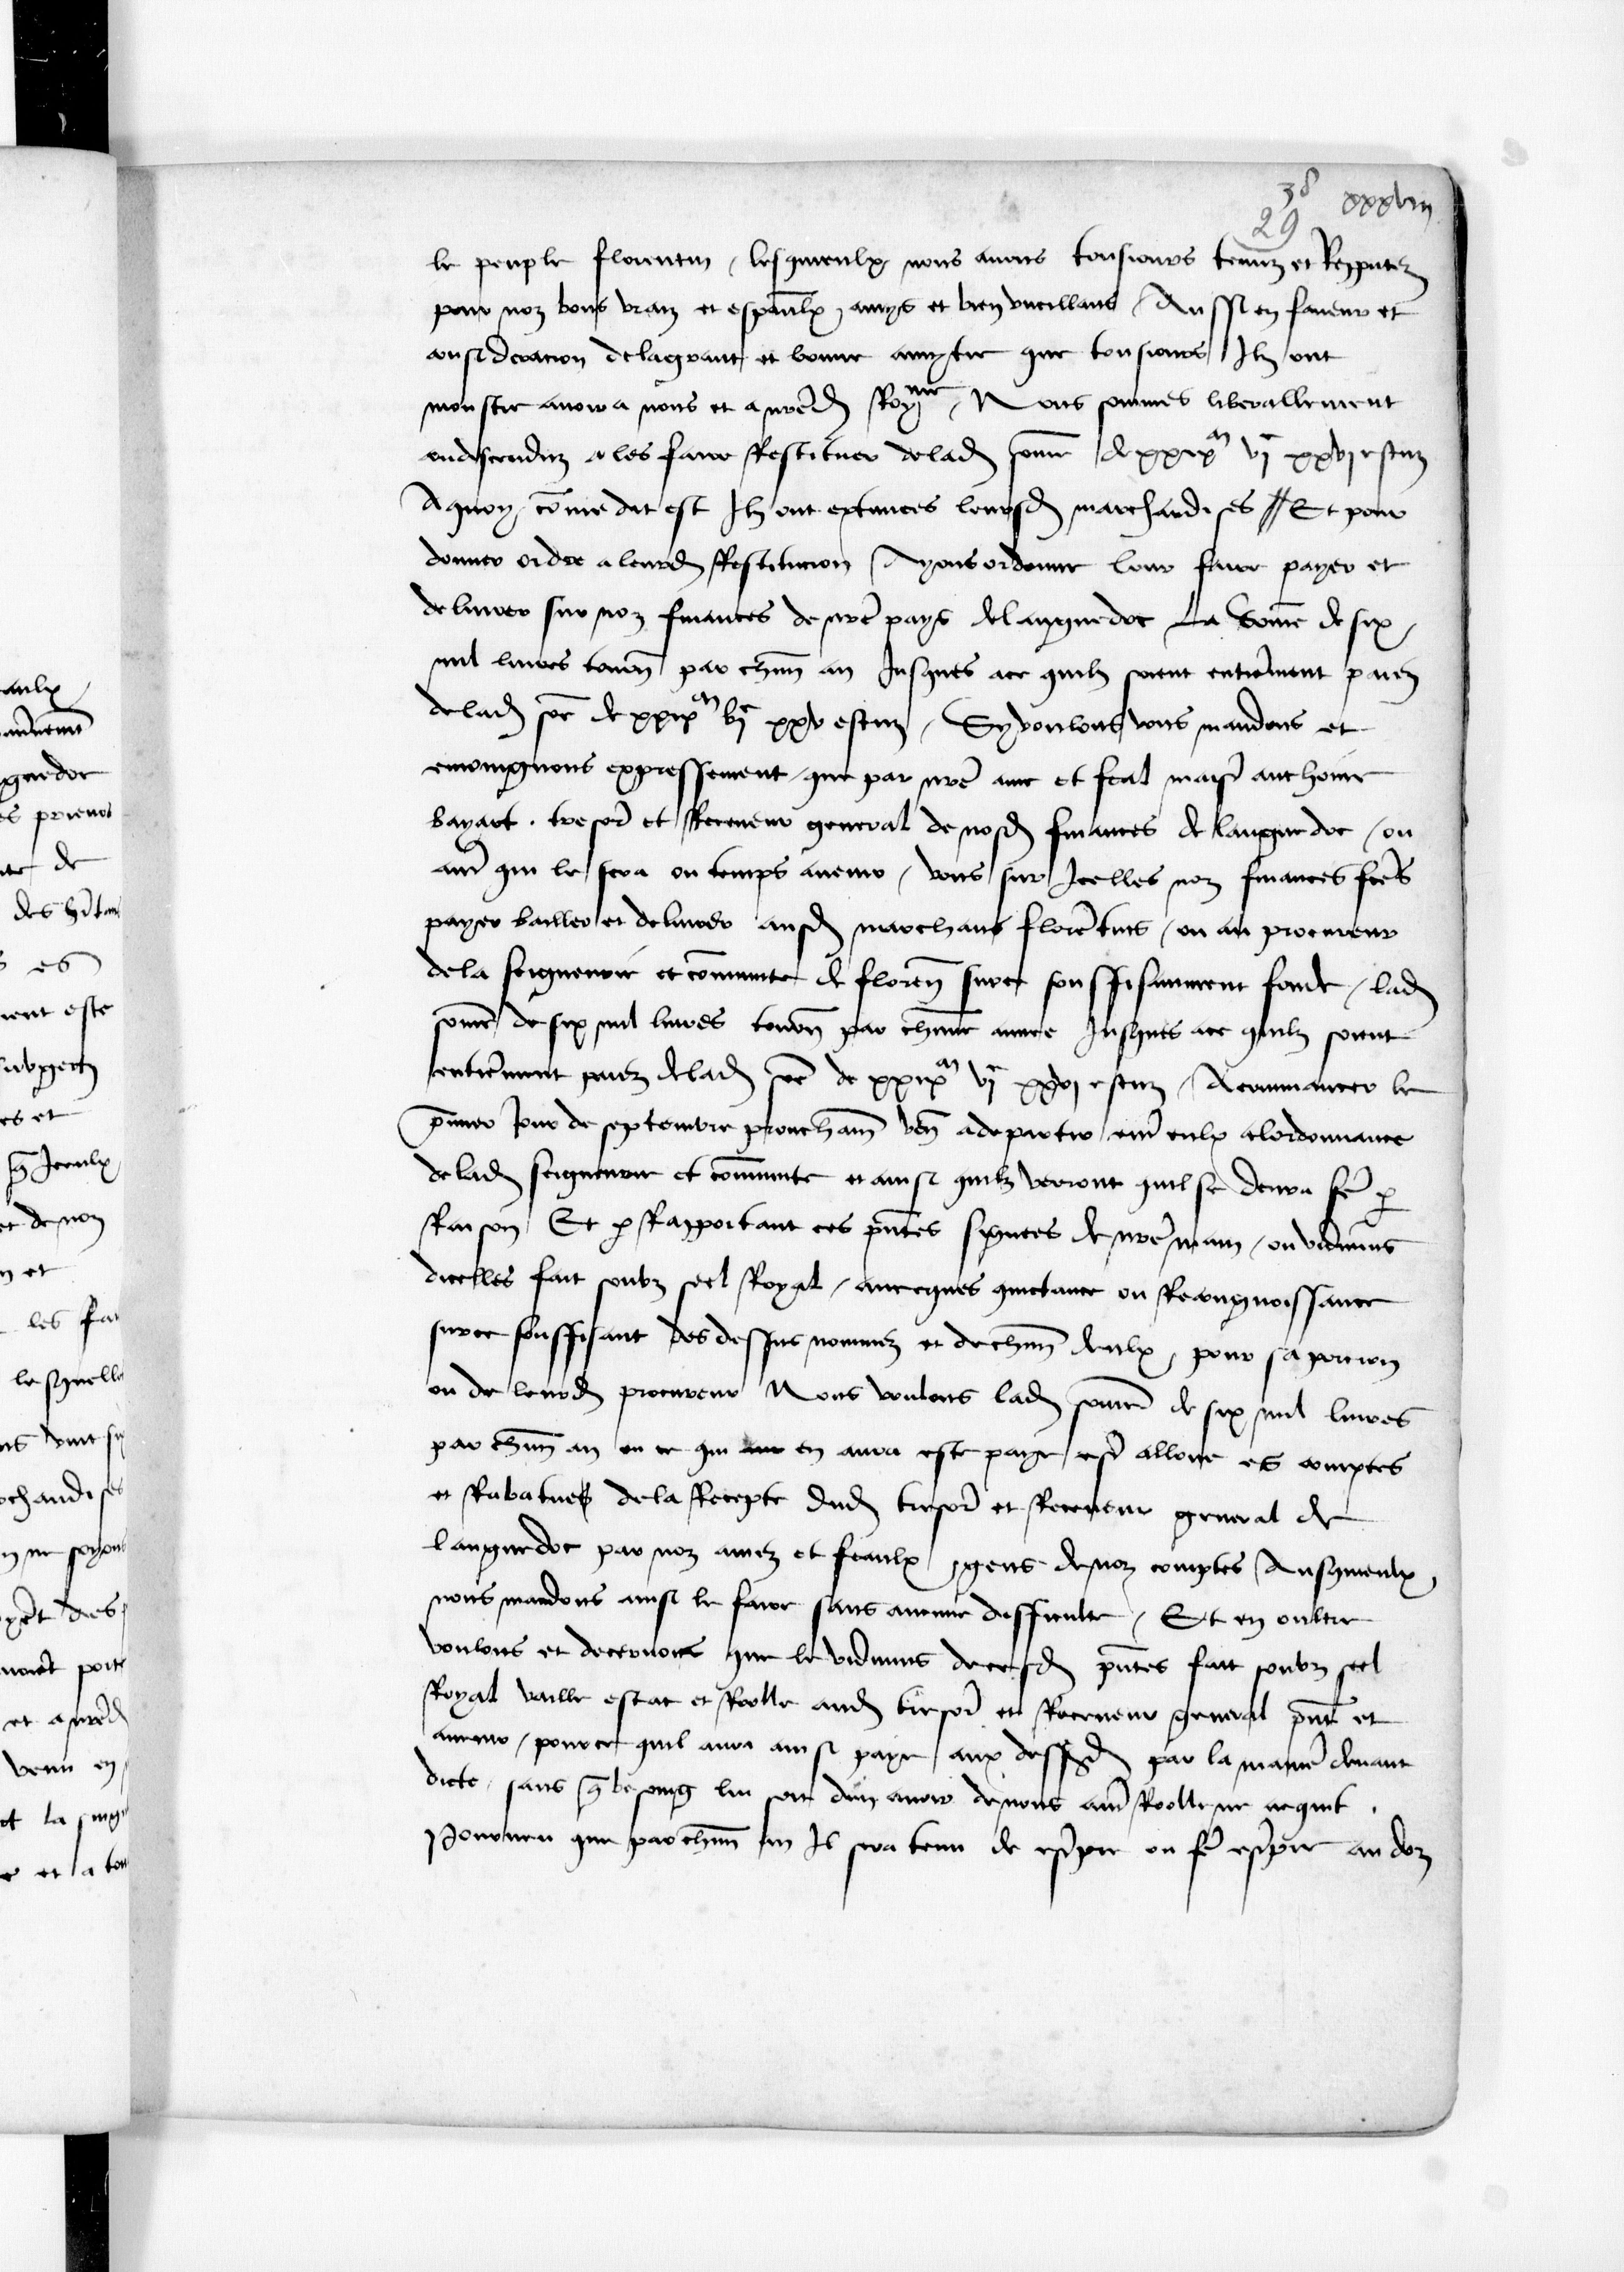 38 xxxviii
29
le peuple florentin / lesquieulx nous auons tousiours tenuz et Repputez
pour noz bons vraiz et especiaulx amys et bien vueillans / Aussi en faueur et
consideracion delagrant et bonne amytie que tousiours Ilz ont
monstre auoir a nous et a nred Royme / Nous sommes liberallement
condescenduz a les faire Restituer delad somme de xxixm vjc xxvj escuz
Aquoy comme dit est Ilz ont extimees leursd marchandises // Et pour
donner ordre a leurd Restitucion Ayons ordonne leur faire payer et
deliurer sur noz finances de nre pays de languedoc La Somme de six
mil liures tourn par chun an Jusques ace quilz soient entierement paiez
delad some de xxixm vjc xxv escuz / Sy voulons vous mandons et
enioingnons expressement que par nre ame et feal maist anthoine
bayart . tresor et Receueur general de nosd finances de languedoc / ou
autre qui le sera ou temps auenir / vous sur Icelles noz finances fetes
payer bailler et deliurer ausd marchans florentins / ou au procureur
dela seigneurie et commute de floren surce souffisamment fonde / lad
somme de six mil liures tourn par chune annee Jusques ace quilz soient
entierement paiez delad some de xxixm vjc xxvj escuz / Acommancer le
premier Jour de septembre prouchain ven adepartir entre eulx alordonnance
delad seigneurie et commute et ainsi quilz verront quil se deura fe p
Raison Et p Rapportant ces pntes signees de nre main / ou vidimus
dicelles fait soubz seel Royal / auecques quictance ou Recongnoissance
surce souffisant des dessus nommez et dechun deulx pour sa porcion
ou de leurd procureur Nous voulons lad somme de six mil liures
par chun an ou ce qui en aura este paye estre alloue es comptes
et Rabatues dela Recepte dud tresor et Receueur general de
languedoc par noz amez et feaulx gens denoz comptes Ausquieulx
nous mandons ainsi le faire sans aucune difficulte / Et en oultre
voulons et decernons que le vidimus decesd pntes fait soubz seel
Royal vaille estat et Rolle aud tresor et Receueur general pnt et
auenir / pource quil aura ainsi paye aux dessusd par la maniere deuant
dicte / sans q besoing lui soit den auoir denous autre Rolle ne acquit .
Pourueu que par chun an Il sera tenu de escrire ou fe escrire au doz